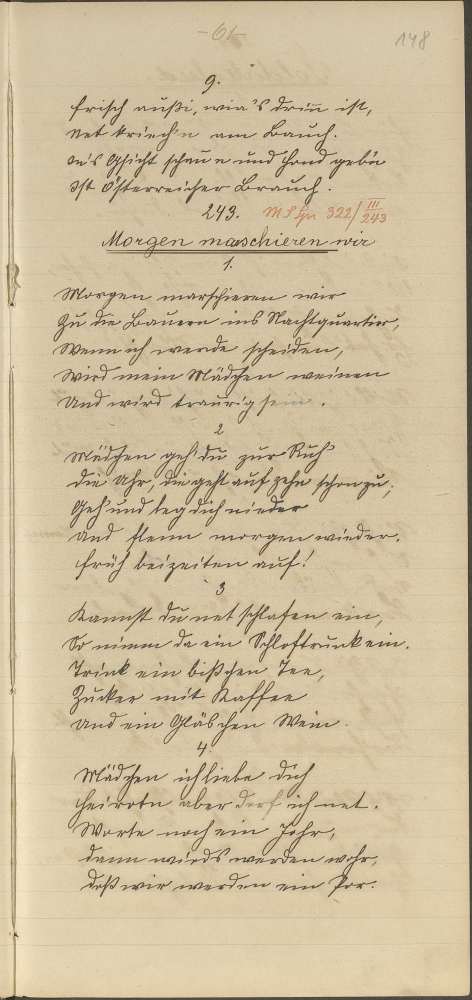 -61-
148
9.
Frisch außi, wia's drin ist,
net kriech'n am Bauch.
In's Gsicht schaun und Hand gebn
Ist Österreicher Brauch.
243. 322/III 243
Morgen marschieren wir
1.
Morgen marschieren wir
Zu die Bauern ins Nachtquartier,
Wenn ich werde scheiden,
Wird mein Mädchen weinen
Und wird traurig sein.
2
Mädchen geh' du zur Ruh'
Die Uhr, die geht auf zehn schon zu,
Geh' und leg dich nieder
Und morgen wieder.
Früh beizeiten auf!
3
Kannst du net schlafen ein,
So nimm da ein Schloftrunk ein.
Trink ein bißchen Tee,
Zucker mit Kaffee
Und ein Gläschen Wein.
4.
Mädchen ich liebe dich
Heirotn aber derf ich net.
Worte noch ein Johr,
Dann wirds werden wohr,
Doß wir werden ein Por.